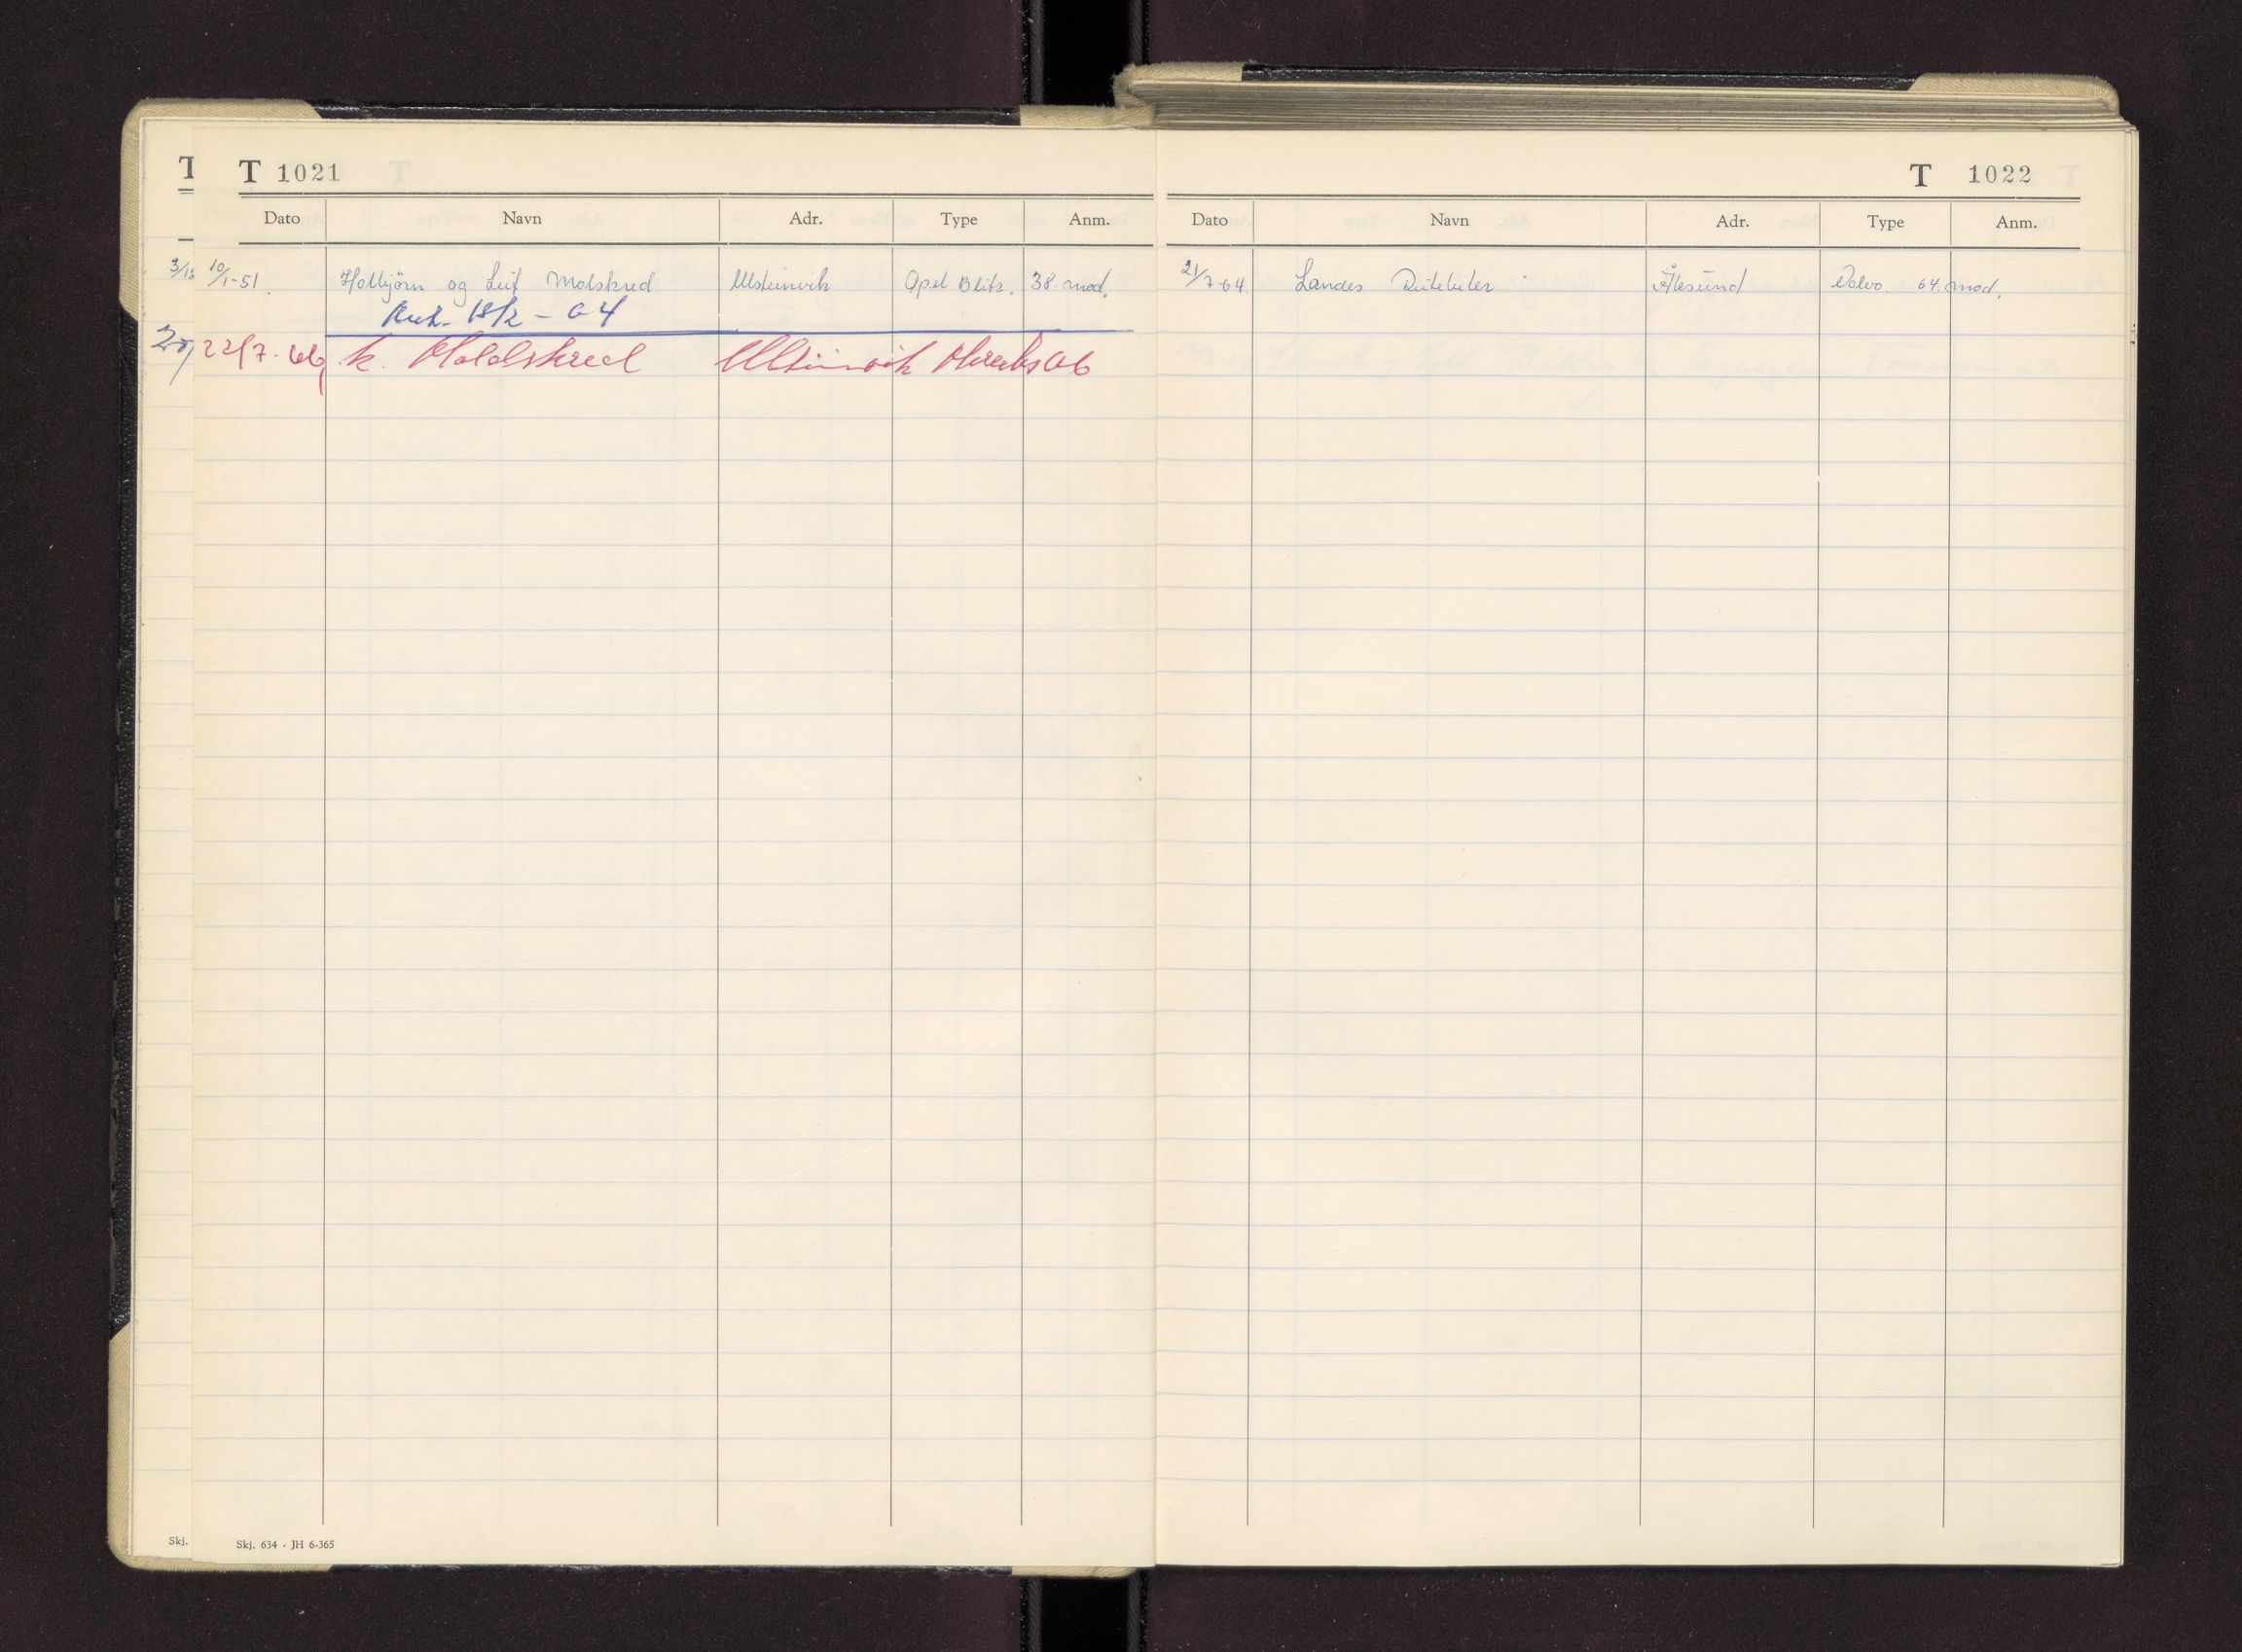 T
T 1021
Dato Navn Adr. Type Anm.
10/1-51. og Leif Molskred Ulsteinvik Opel Blitz. 38. mod.
18/2 - 64
22/7-66 k. Moldskred Ulsteinvik
Skj.
Skj. 634 - JH 6-365
T 1022
Dato Navn Adr. Type Anm.
21/7-64. Landes Rutebiler Ålesund Volvo. 64. mod.